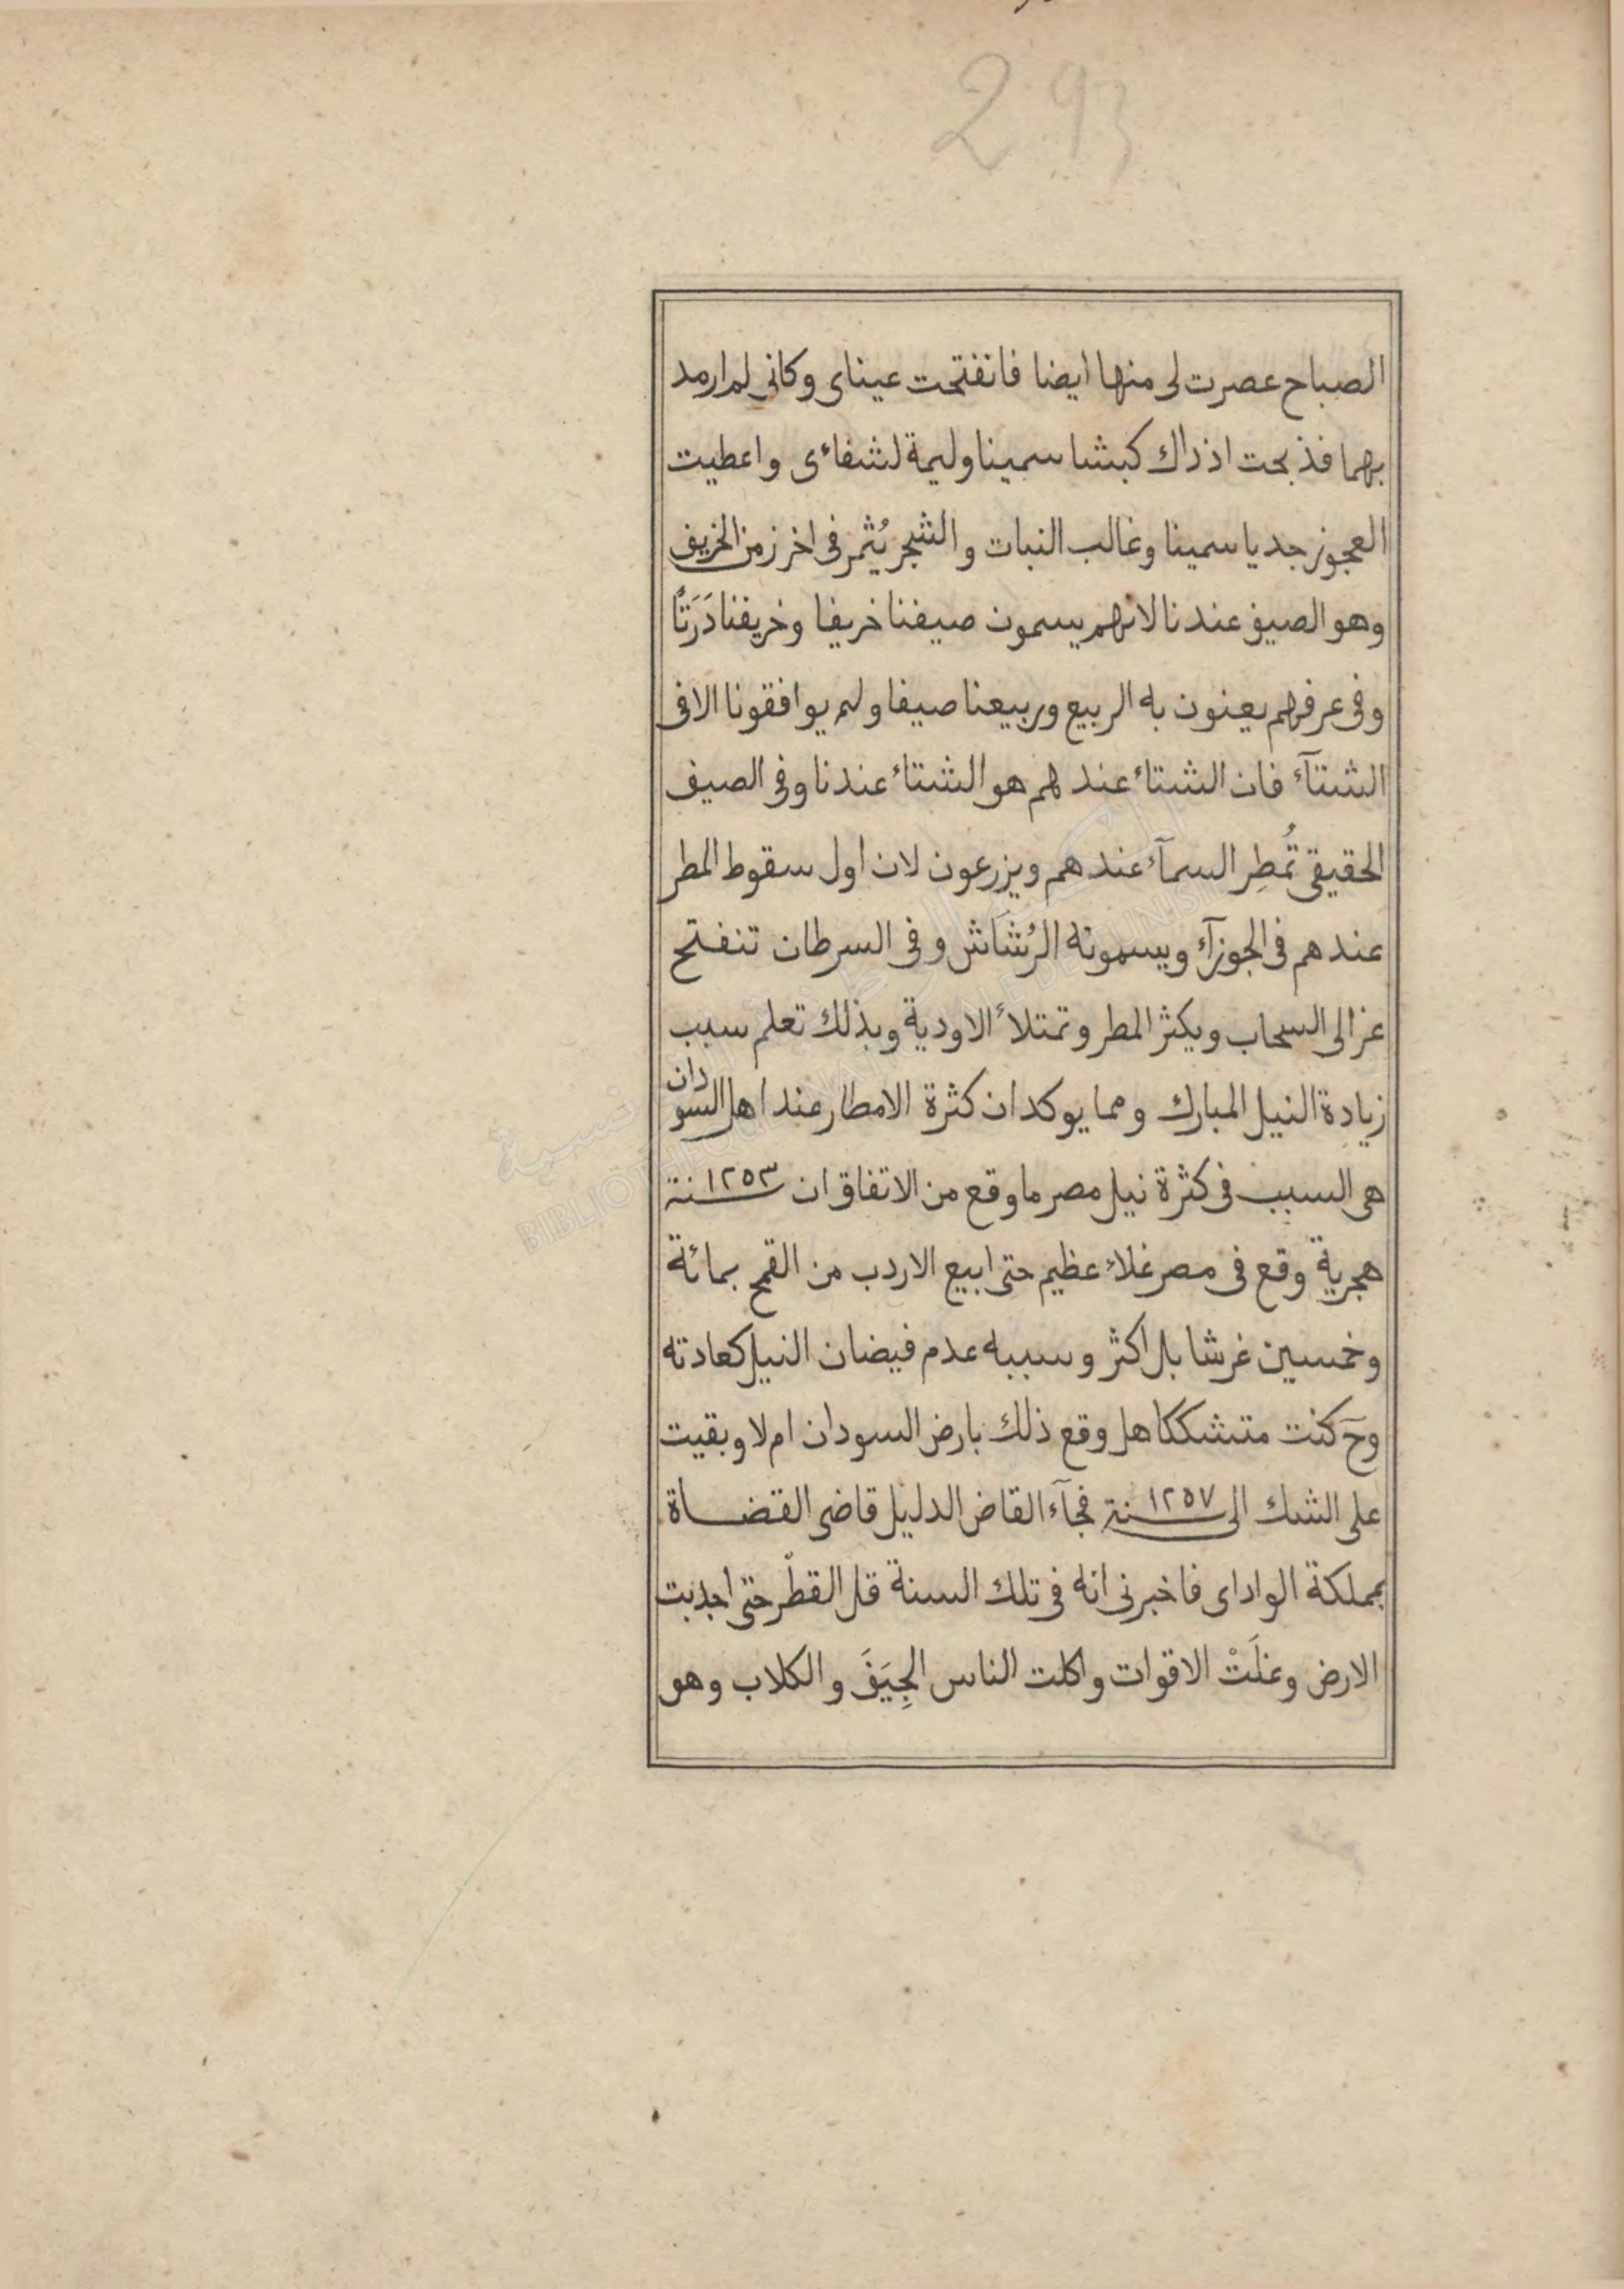 293
الصباح عصرت لى منها ايضا فانفتحت عيناى وكانى لم ارمد
بهما فذبحت اذ ذاك كبشا سمينا وليمة لشفاءى واعطيت
العجوز جديا سمينا وغالب النبات والشجر يُثمر فى اخر زمن الخريف
وهو الصيف عندنا لانهم يسمون صيفنا خريفا وخريفنا دَرَتًا
وفى عرفهم يعنون به الربيع وربيعنا صيفا ولم يوافقونا الا فى
الشتآء فان الشتاء عندهم هو الشتاء عندنا وفى الصيف
الحقيقى تُمطِر السمآء عندهم ويزرعون لان اول سقوط المطر
عندهم فى الجوزآء ويسمونه الرُشَاش وفى السرطان تنفتح
عزالى السحاب ويكثر المطر وتمتلأ الاودية وبذلك تعلم سبب
زيادة النيل المبارك ومما يوكد ان كثرة الامطار عند اهل السودان
هى السبب فى كثرة نيل مصر ما وقع من الاتفاق ان سنة ١٢٥٣
هجرية وقع فى مصر غلاء عظيم حتى ابيع الاردب من القمح بمائة
وخمسين غرشا بل اكثر وسببه عدم فيضان النيل كعادته
وحٓ كنت متشككا هل وقع ذلك بارض السودان ام لا وبقيت
على الشك الى سنة ١٢٥٧ فجآء القاض الدليل قاضى القضاة
بمملكة الواداى فاخبرنى انه فى تلك السنة قل القطْر حتى اجدبت
الارض وغلَتْ الاقوات واكلت الناس الجِيَفَ والكلاب وهو
BIBLIOTHEQUE NATIONALE DE TUNISIE